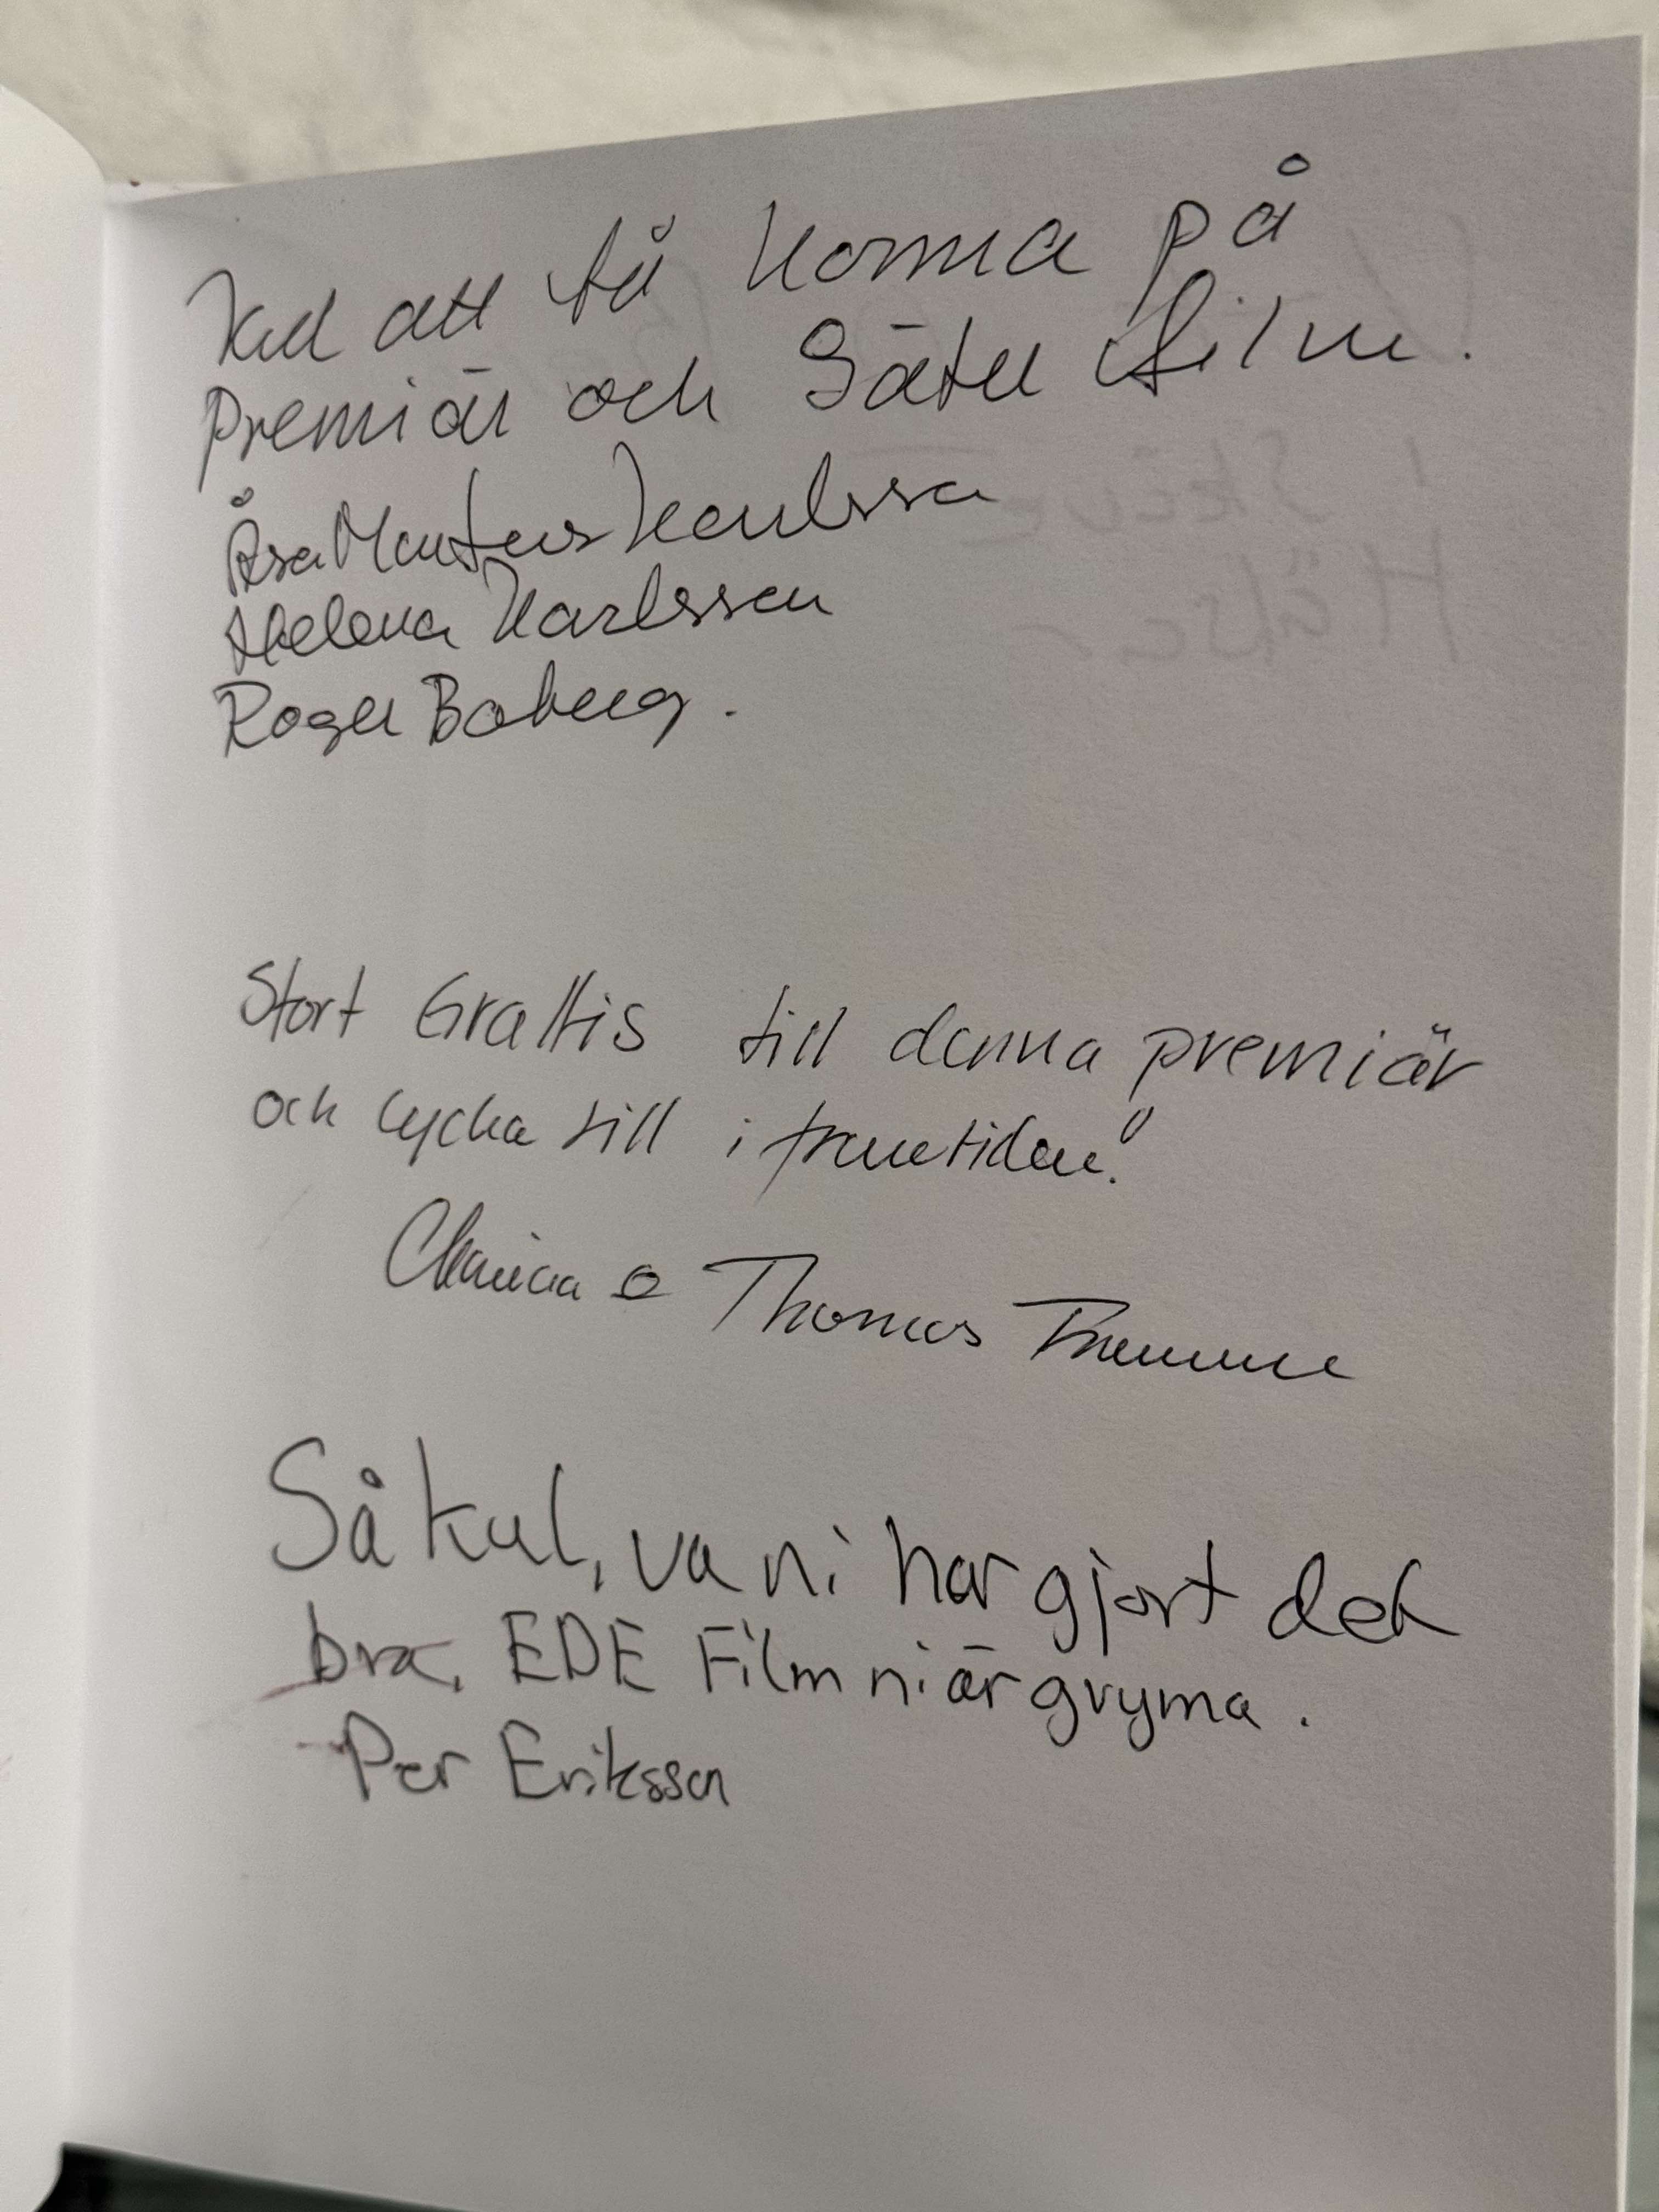 Kul att få komma på
Premiär och Säter film.
Åsa Karlsson
Helena Karlsson
Roger Boberg.
Stort Grattis till denna premiär
och lycka till i framtiden!
o Thomas
Så kul, va ni har gjort det
bra, EDE Film ni är gryma.
Per Eriksson